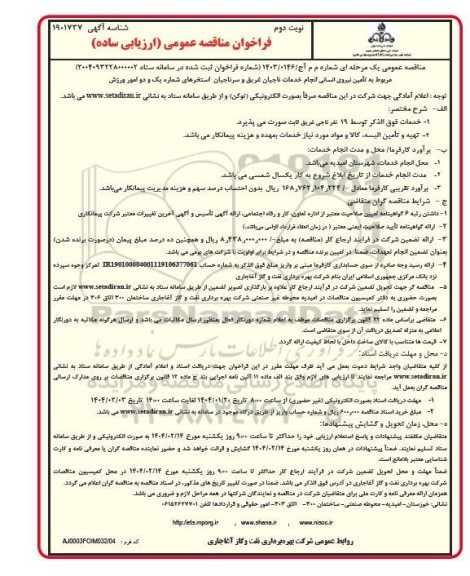 نوبت دوم
شناسه آگهی ۱۹۰۱۷۳۷
فراخوان مناقصه عمومی (ارزیابی ساده)
مناقصه عمومی یک مرحله ای شماره م م آج/۱۴۰۳/۰۱۴۶ (شماره فراخوان ثبت شده در سامانه ستاد ۲۰۰۴۰۹۳۲۲۸۰۰۰۰۰۲)
مربوط به تأمین نیروی انسانی انجام خدمات ناجیان غریق و سرناجیان استخرهای شماره یک و دو امور ورزش
توجه: اعلام آمادگی جهت شرکت در این مناقصه صرفاً بصورت الکترونیکی (توکن) و از طریق سامانه ستاد به نشانی www.setadiran.ir می باشد.
الف- شرح مختصر:
۱- خدمات فوق الذکر توسط ۱۹ نفر ناجی غریق ثابت صورت می پذیرد.
۲- تهیه و تأمین البسه، کالا و مواد مورد نیاز خدمات بعهده و هزینه پیمانکار می باشد.
ب- برآورد کارفرما/ محل و مدت انجام خدمات:
۱- محل انجام خدمات، شهرستان امیدیه می‌باشد.
۲- مدت انجام خدمات از تاریخ ابلاغ شروع به کار یکسال شمسی می باشد.
۳- برآورد تقریبی کارفرما معادل ۱۶۸,۷۶۲,۱۰۴,۲۲۴/- ریال بدون احتساب درصد سهم و هزینه مدیریت پیمانکار می‌باشد.
ج - شرایط مناقصه گران متقاضی
۱- داشتن رتبه ۶ گواهینامه تعیین صلاحیت معتبر از اداره تعاون، کار و رفاه اجتماعی، ارائه آگهی تأسیس و آگهی آخرین تغییرات معتبر شرکت پیمانکاری
۲- ارائه گواهینامه تأیید صلاحیت ایمنی معتبر ( در زمان انعقاد قرارداد الزامی می‌باشد.)
۳- ارائه تضمین شرکت در فرآیند ارجاع کار (مناقصه) به مبلغ ۸,۴۳۸,۰۰۰,۰۰۰/- ریال و همچنین ده درصد مبلغ پیمان (درصورت برنده شدن)
بعنوان تضمین انجام تعهدات، ضمناً در تعیین برنده مناقصه و در شرایط برابر اولویت با شرکت های بومی می باشد.
۴- ارائه رسید وجه صادره از سوی حسابداری کارفرما مبنی بر واریز مبلغ فوق الذکر به شماره حساب IR190100004001119106377061 تمرکز وجوه سپرده
نزد بانک مرکزی جمهوری اسلامی ایران بنام شرکت بهره برداری نفت و گاز آغاجاری
۵- مناقصه گر جهت تحویل تضمین شرکت در فرآیند ارجاع کار علاوه بر بارگذاری تصویر تضمین از طریق سامانه ستاد به نشانی www.setadiran.ir لازم است
بصورت حضوری به دفتر کمیسیون مناقصات در امیدیه محوطه غیر صنعتی شرکت بهره برداری نفت و گاز آغاجاری ساختمان ۳۰۰ اتاق ۳۰۶ در مهلت مقرر
مراجعه و تضمین را تسلیم نماید.
۶- متقاضی براساس ماده ۲۲ قانون برگزاری مناقصات موظف به اعلام شماره دورنگار فعال بمنظور ارسال مکاتبات می باشد و ارسال هرگونه مکاتبه به دورنگار
اعلامی به منزله تصدیق دریافت آن از سوی متقاضی است.
۷- قیمت ها متناسب با کالای ساخت داخل با لحاظ کیفیت ارائه گردد.
د- محل و مهلت دریافت اسناد:
از کلیه متقاضیان واجد شرایط دعوت بعمل می آید ظرف مهلت مقرر در این فراخوان جهت دریافت اسناد و اعلام آمادگی از طریق سامانه ستاد به نشانی
www.setadiran.ir مراجعه نمایند تا ارزیابی های لازم وفق بند الف ماده ۱۱ آئین نامه اجرایی بند ج ماده ۱۲ قانون برگزاری مناقصات بر روی مدارک ارسالی
مناقصه گران بعمل آید.
۱- مهلت دریافت اسناد بصورت الکترونیکی (غیر حضوری) از ساعت ۸:۰۰ تاریخ ۱۴۰۴/۰۱/۲۰ لغایت ساعت ۱۴:۰۰ تاریخ ۱۴۰۴/۰۲/۰۳
۲- مبلغ خرید اسناد مناقصه ۶۰۰,۰۰۰ ریال و شماره حساب واریز از طریق درگاه موجود در سامانه به نشانی www.setadiran.ir می باشد.
ه- محل، زمان تحویل و گشایش پیشنهادها:
متقاضیان مکلفند پیشنهادات و پاسخ استعلام ارزیابی خود را حداکثر تا ساعت ۹:۰۰ روز یکشنبه مورخ ۱۴۰۴/۰۲/۱۴ به صورت الکترونیکی و از طریق سامانه
ستاد تسلیم نمایند. ضمناً پیشنهادات در همان روز یکشنبه مورخ ۱۴۰۴/۰۲/۱۴ گشایش و قرائت خواهد شد و حضور نماینده مناقصه گران با معرفی نامه و کارت
شناسایی معتبر بلامانع است.
ضمناً مهلت و محل تحویل تضمین شرکت در فرآیند ارجاع کار حداکثر تا ساعت ۹:۰۰ روز یکشنبه مورخ ۱۴۰۴/۰۲/۱۴ در محل کمیسیون مناقصات
شرکت بهره برداری نفت و گاز آغاجاری در آدرس فوق الذکر می باشد. ضمناً در صورت تغییر تاریخ های مذکور، در اسناد مناقصه به مناقصه گران اعلام می گردد.
همزمان ارائه معرفی نامه و کارت ملی برای متقاضیان شرکت در مناقصه و نمایندگان شرکتها در همه مراحل لازم و ضروری می باشد.
نشانی: خوزستان-امیدیه- محوطه صنعتی-ساختمان ۳۰۰- اتاق ۳۰۳- امور حقوقی و قراردادها تلفن ۰۶۱۵۲۶۲۷۷۰۱
http://iets.mporg.ir , www.shana.ir , www.nisoc.ir
روابط عمومی شرکت بهره‌برداری نفت و گاز آغاجاری
کد فرم : AJ0003FOIM032/04